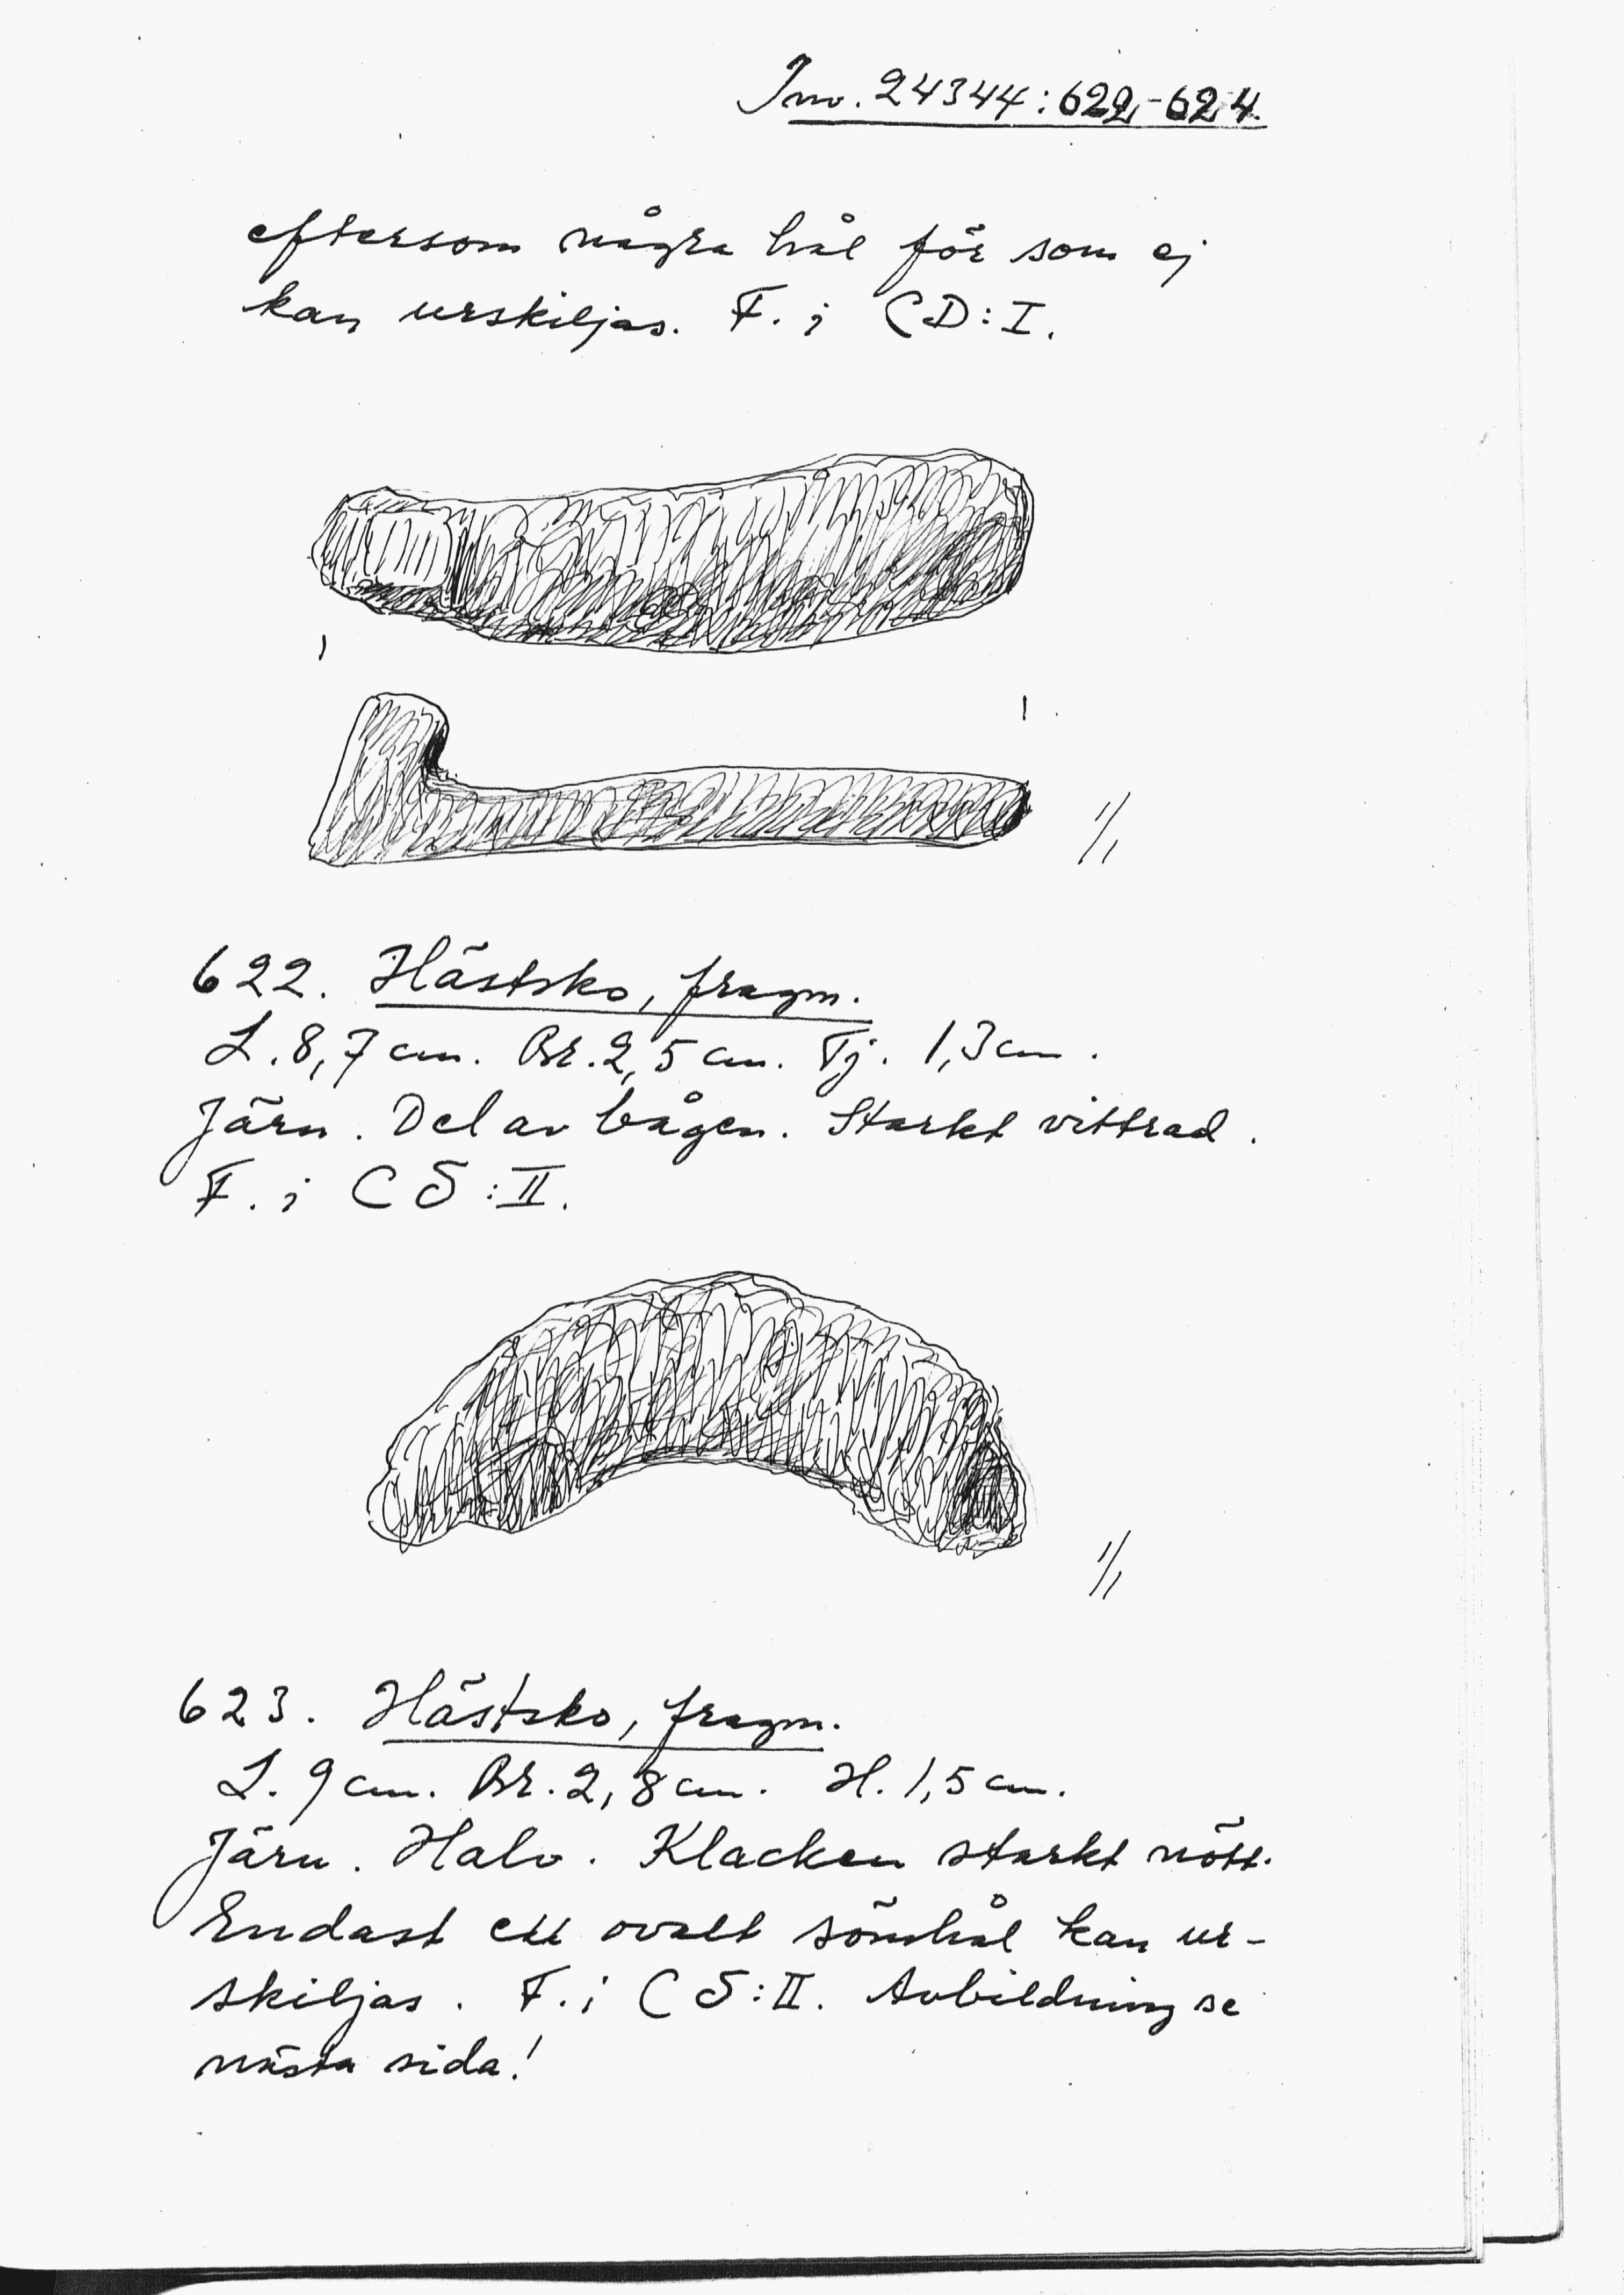 Inv. 24344:622-624.
eftersom några hål för som ej
kan urskiljas. F. i CD:I.
1/1
622. Hästsko, fragm.
L. 8,7 cm. Br. 2,5 cm. Tj. 1,3 cm.
Järn. Del av bågen. Starkt vittrad.
F. i CS:II.
1/1
623. Hästsko, fragm.
L. 9 cm. Br. 2,8 cm. H. 1,5 cm.
Järn. Halv. Klacken starkt nött.
Endast ett ovalt sömhål kan ur-
skiljas. F. i CS:II. Avbildning se
nästa sida!